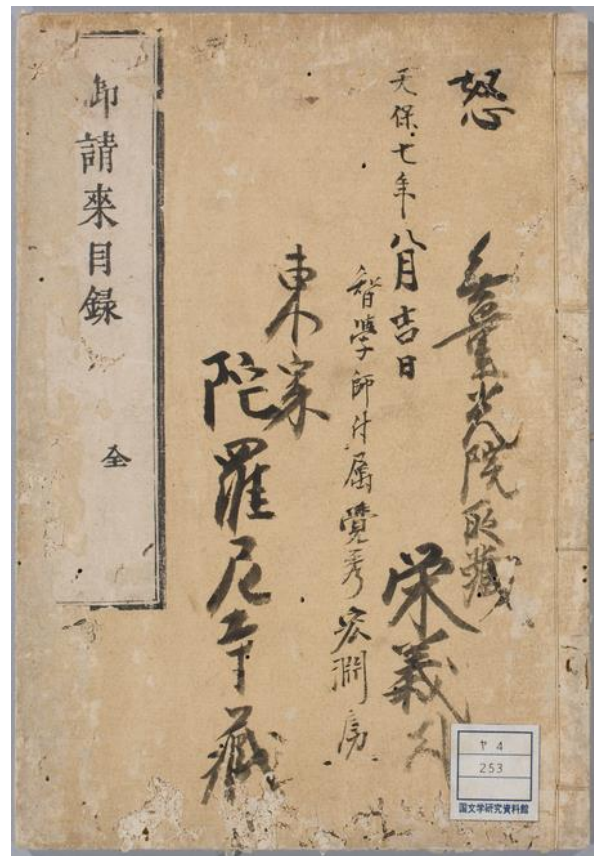 怒
無量光院所藏
天保七年八月吉日
栄義
智學師付属覺秀宏淵房
東家
陀羅尼 藏
御請來目録 全
ヤ4
253
国文学研究資料館